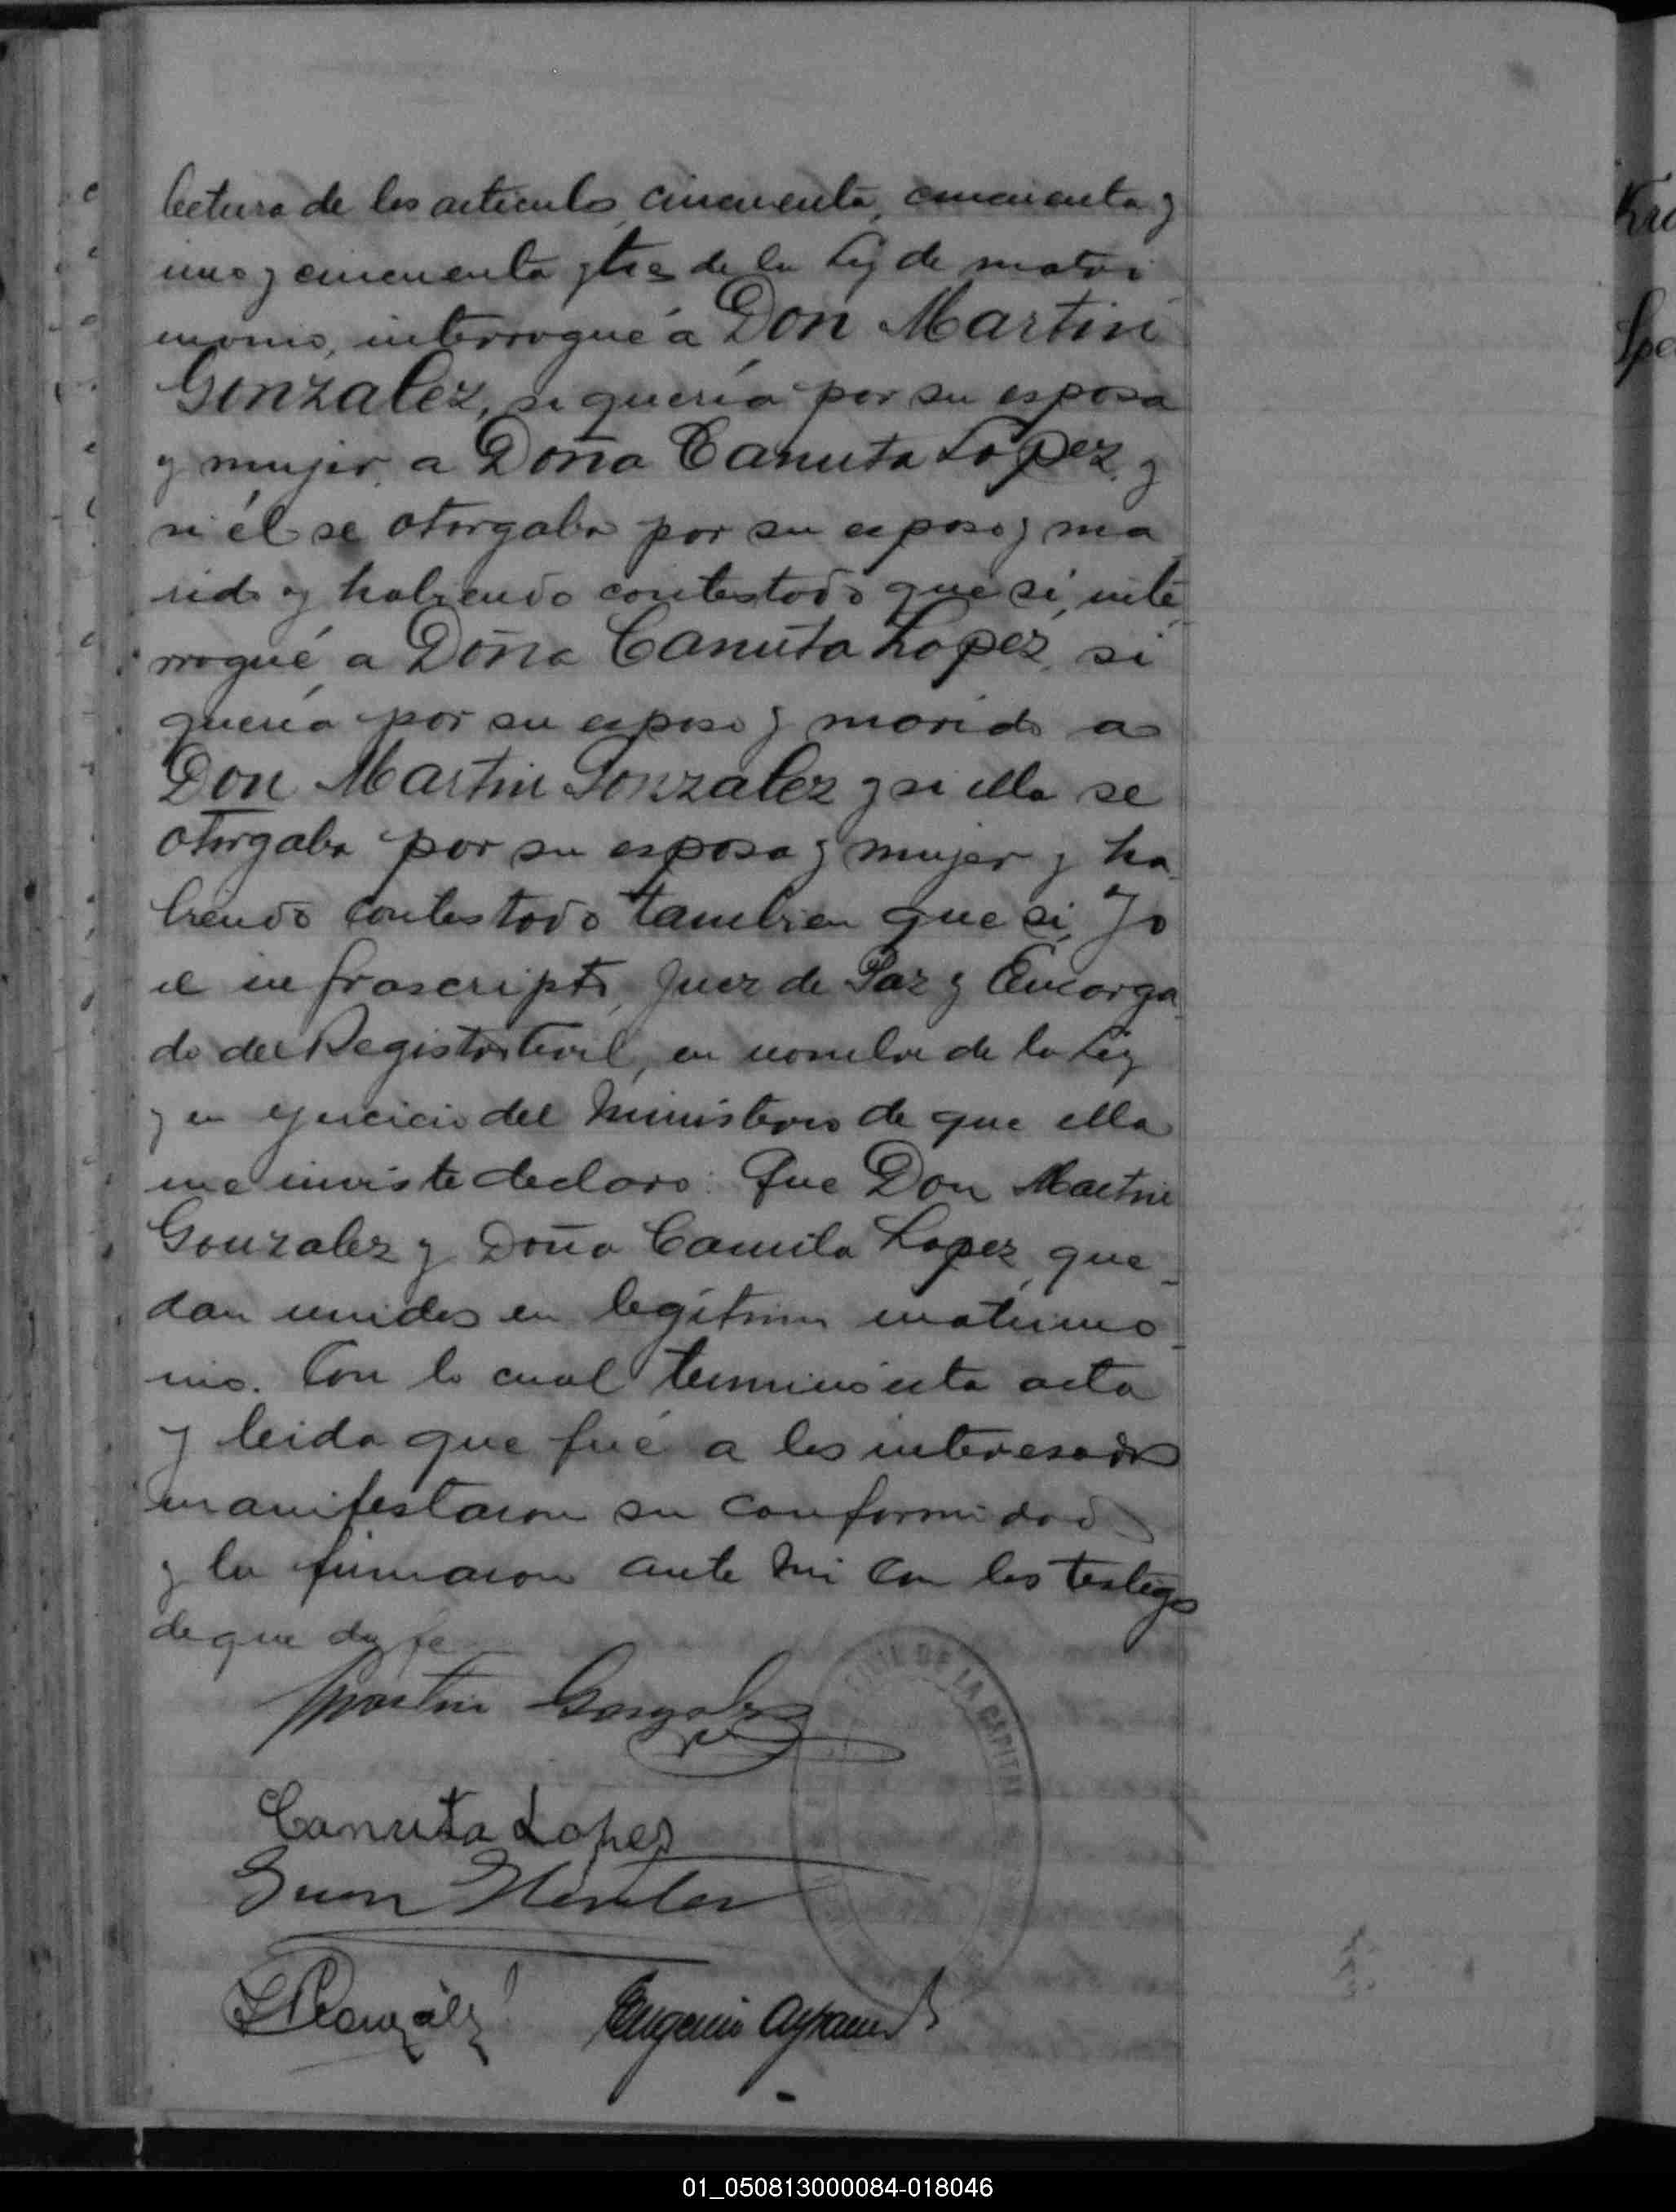 lectura de los articulos cincuenta, cincuenta y
uno y cincuenta y tres de la Ley de matri
monio, interrogué a Don Martin
Gonzalez, si quería por su esposa
y mujer, a Doña Canuta Lopez, y
si él se otorgaba por su esposo y ma
rido y habiendo contestado que si, inte
rrogué a Doña Canuta Lopez, si
quería por su esposo y marido a
Don Martin Gonzalez y si ella se
otorgaba por su esposa y mujer y ha
biendo contestado tambien que si, Yo
el infrascripto, Juez de Paz y Encarga
do del Registro Civil, en nombre de la Ley
y en ejercicio del Ministerio de que ella
me inviste declaro: Que Don Martin
Gonzalez y Doña Camila Lopez, que-
dan unidos en legítimo matrimo-
nio. Con lo cual termino esta acta
y leida que fué a los interesados
manifestaron su conformidad
y la firmaron ante mi con los testigos
de que doy fe
Martin Gonzalez
Canuta Lopez
Juan
Gonzalez Eugenio
DE LA CAPITAL
01_050813000084-018046